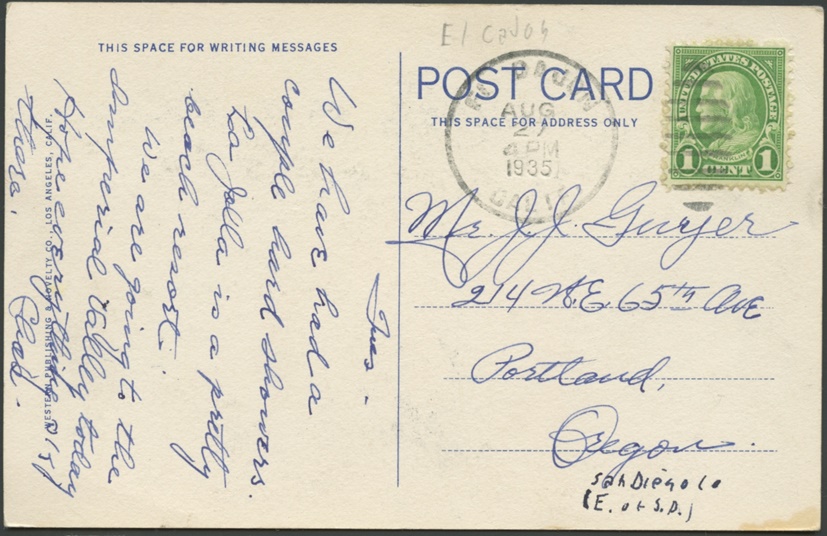 El Cajon
THIS SPACE FOR WRITING MESSAGES
POST CARD
THIS SPACE FOR ADDRESS ONLY
EL CAJON
AUG
27
4 PM
1935
CALIF.
UNITED STATES POSTAGE
FRANKLIN
1 CENT 1
Tues.
We have had a
couple hard showers.
La Jolla is a pretty
beach resort.
We are going to the
Imperial Valley today
Hope everything O.K.
there.
Chas.
WESTERN PUBLISHING & NOVELTY CO., LOS ANGELES, CALIF.
Mr. J. J. Guyer
214 N.E. 65th Ave
Portland,
Oregon.
San Diego Co
(E. of S.D.)